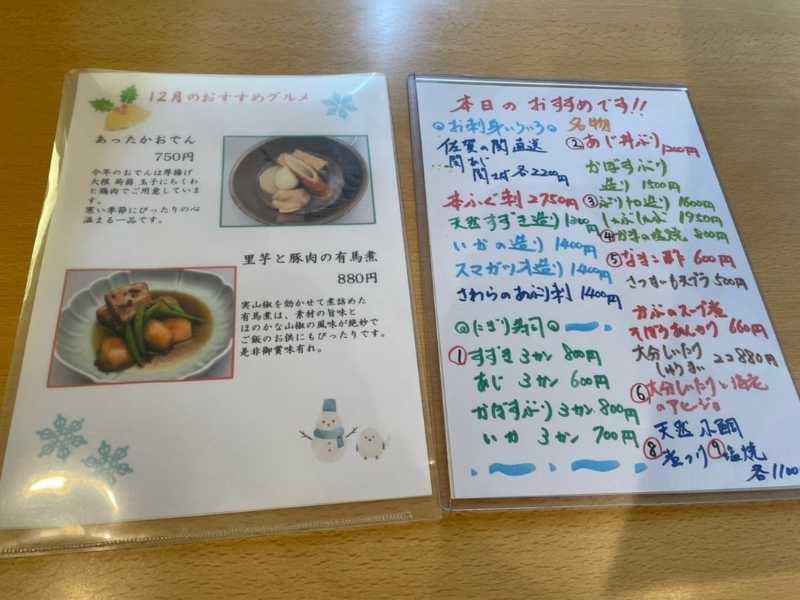 12月のおすすめグルメ
あったかおでん
750円
今年のおでんは厚揚げ
大根 蒟蒻 玉子にちくわ
と鶏肉でご用意していま
す。
寒い季節にぴったりの心
温まる一品です。
里芋と豚肉の有馬煮
880円
実山椒を効かせて煮詰めた
有馬煮は、素材の旨味と
ほのかな山椒の風味が絶妙で
ご飯のお供にもぴったりです。
是非御賞味有れ。
本日の おすすめです!!
お刺身いろいろ
佐賀の関直送
関あじ
関さば 各2200円
本ふぐ刺 2750円
天然すずき造り 1300円
いかの造り 1400円
スマガツオ造り 1400円
さわらのあぶり刺 1400円
にぎり寿司
① すずき 3カン 800円
あじ 3カン 600円
かぼすぶり 3カン 800円
いか 3カン 700円
名物
② あじ丼ぶり 1200円
かぼすぶり
造り 1500円
③ ぶりゆ造り 1600円
しゃぶしゃぶ 1950円
④ の塩焼 800円
⑤ なまこ酢 600円
さつまいも天プラ 500円
かぶのスープ煮
そぼろあんかけ 660円
大分しいたけ
しゅうまい 2コ880円
⑥ 大分しいたけと海老
のアヒージョ
天然 小鯛
⑧ 煮つけ ⑨ 塩焼
各1100